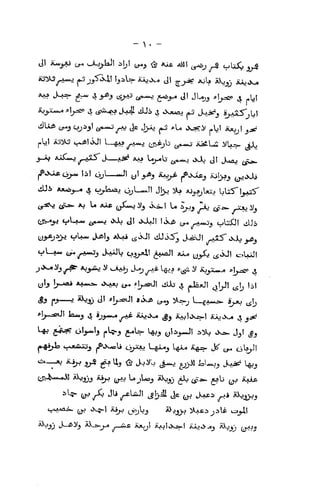 - ١٠ -
عمرو بكتاب عمر رضى الله عنه ۞ ومن اراد الطريف من نفوسة الى
مدينة زويلة فانه يخرج الى مدينة جادوا المذكور ثم يسير ثلاثة
ايام فى صحراء ورمال الى موضع يسمى تيرى وهو فى سفح جبل فيه
ابار كثيرة ونخيل ثم يصعد فى ذلك الجبل فيمشى فى صحراء مستوية
نحو اربعة ايام لا يجد ماء ثم ينزل على بير تسمى اودرب ومن هناك
يلقى جبالا شامخة تسمى تارغين يسير فيها الذاهب ثلاثة ايام
حتى يصل الى بلد يسمى تامرما فيه نخيل كثير يسكنه بنو
قلدين وفزانة وعندهم غريبة وهو ان السارق اذا سرق عندهم
كتبوا كتابا يتعارفونه فلا يزال السارق يضطرب فى موضعه ذلك
ولا يفتر حتى يقر ويرد ما اخذ ولا يسكن عنه ما به حتى يمحى
ذلك الكتاب ويسير من هذا البلد الى بلد يسمى سباب يومين
وهو بلد كثير النخيل وكذلك الذى قبله واهل سباب يزدرعون
النبات الذى يكون منه الصبغ المعروف بالنيل ويسير من سباب
فى صحراء مستوية لا شىء فيها غير رمل رقيق لا يشوبه حجر ولا مدر
اذا راى الراى العظم فى تلك الصحراء من بعيد حسبه قصرا وان
راى بعرة حسبها رجلا ومن هذه الصحراء الى زويلة يوم وهى
نحو مدينة اجدابية وهى مدينة غير مسورة فى وسط الصحراء
وهى اول حد بلاد السودان وبها جامع وحمام واسواق تجتمع بها
الرفاق من كل جهة منها ومنها يفترق قاصدهم وتتشعب طرقهم
وبها نخيل وبساط للزرع يسقى بالابل ۞ ولما فتح عمرو برقة بعث
عقبة بن نافع حتى بلغ زويلة وصار ما بين برقة وزويلة للمسلمين
وبزويلة قبر دعبل بن على الخزاعى الشاعر قال بكر بن حماد
الموت غادر دعبلا بزويلة وبارض برقة احمد بن خصيب
وبين زويلة ومدينة اجدابية اربعة عشر مرحلة ولاهل زويلة